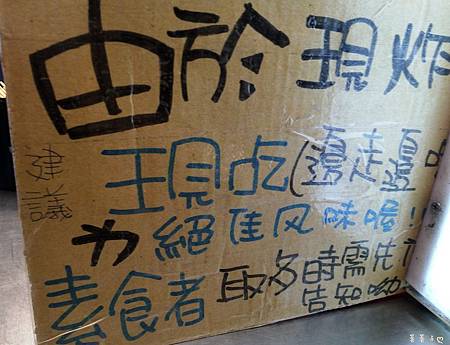 由於現炸
建議
現吃(邊走邊吃
才絕佳风味喔!!
素食者取多時需先
告知呦